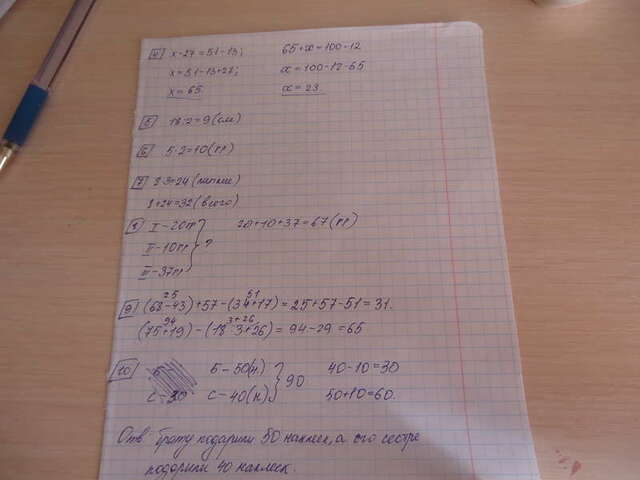 4 x-27=51-13; 65+x=100-12
x=51-13+27; x=100-12-65
x=65 x=23
5 18:2=9(см)
6 5·2=10(гг)
7 8·3=24(липкие)
8+24=32(всего)
8 I-20гг 20+10+37=67(гг)
II-10гг ?
III-37гг
25 51
9 (68-43)+57-(34+17)=25+57-51=31.
94 3+26
(75+19)-(18 3+26)=94-29=65
10 Б-50(н) 90 40-10=30
С-30 С-40(н) 50+10=60.
Отв Брату подарили 50 наклеек, а его сестре
подарили 40 наклеек.